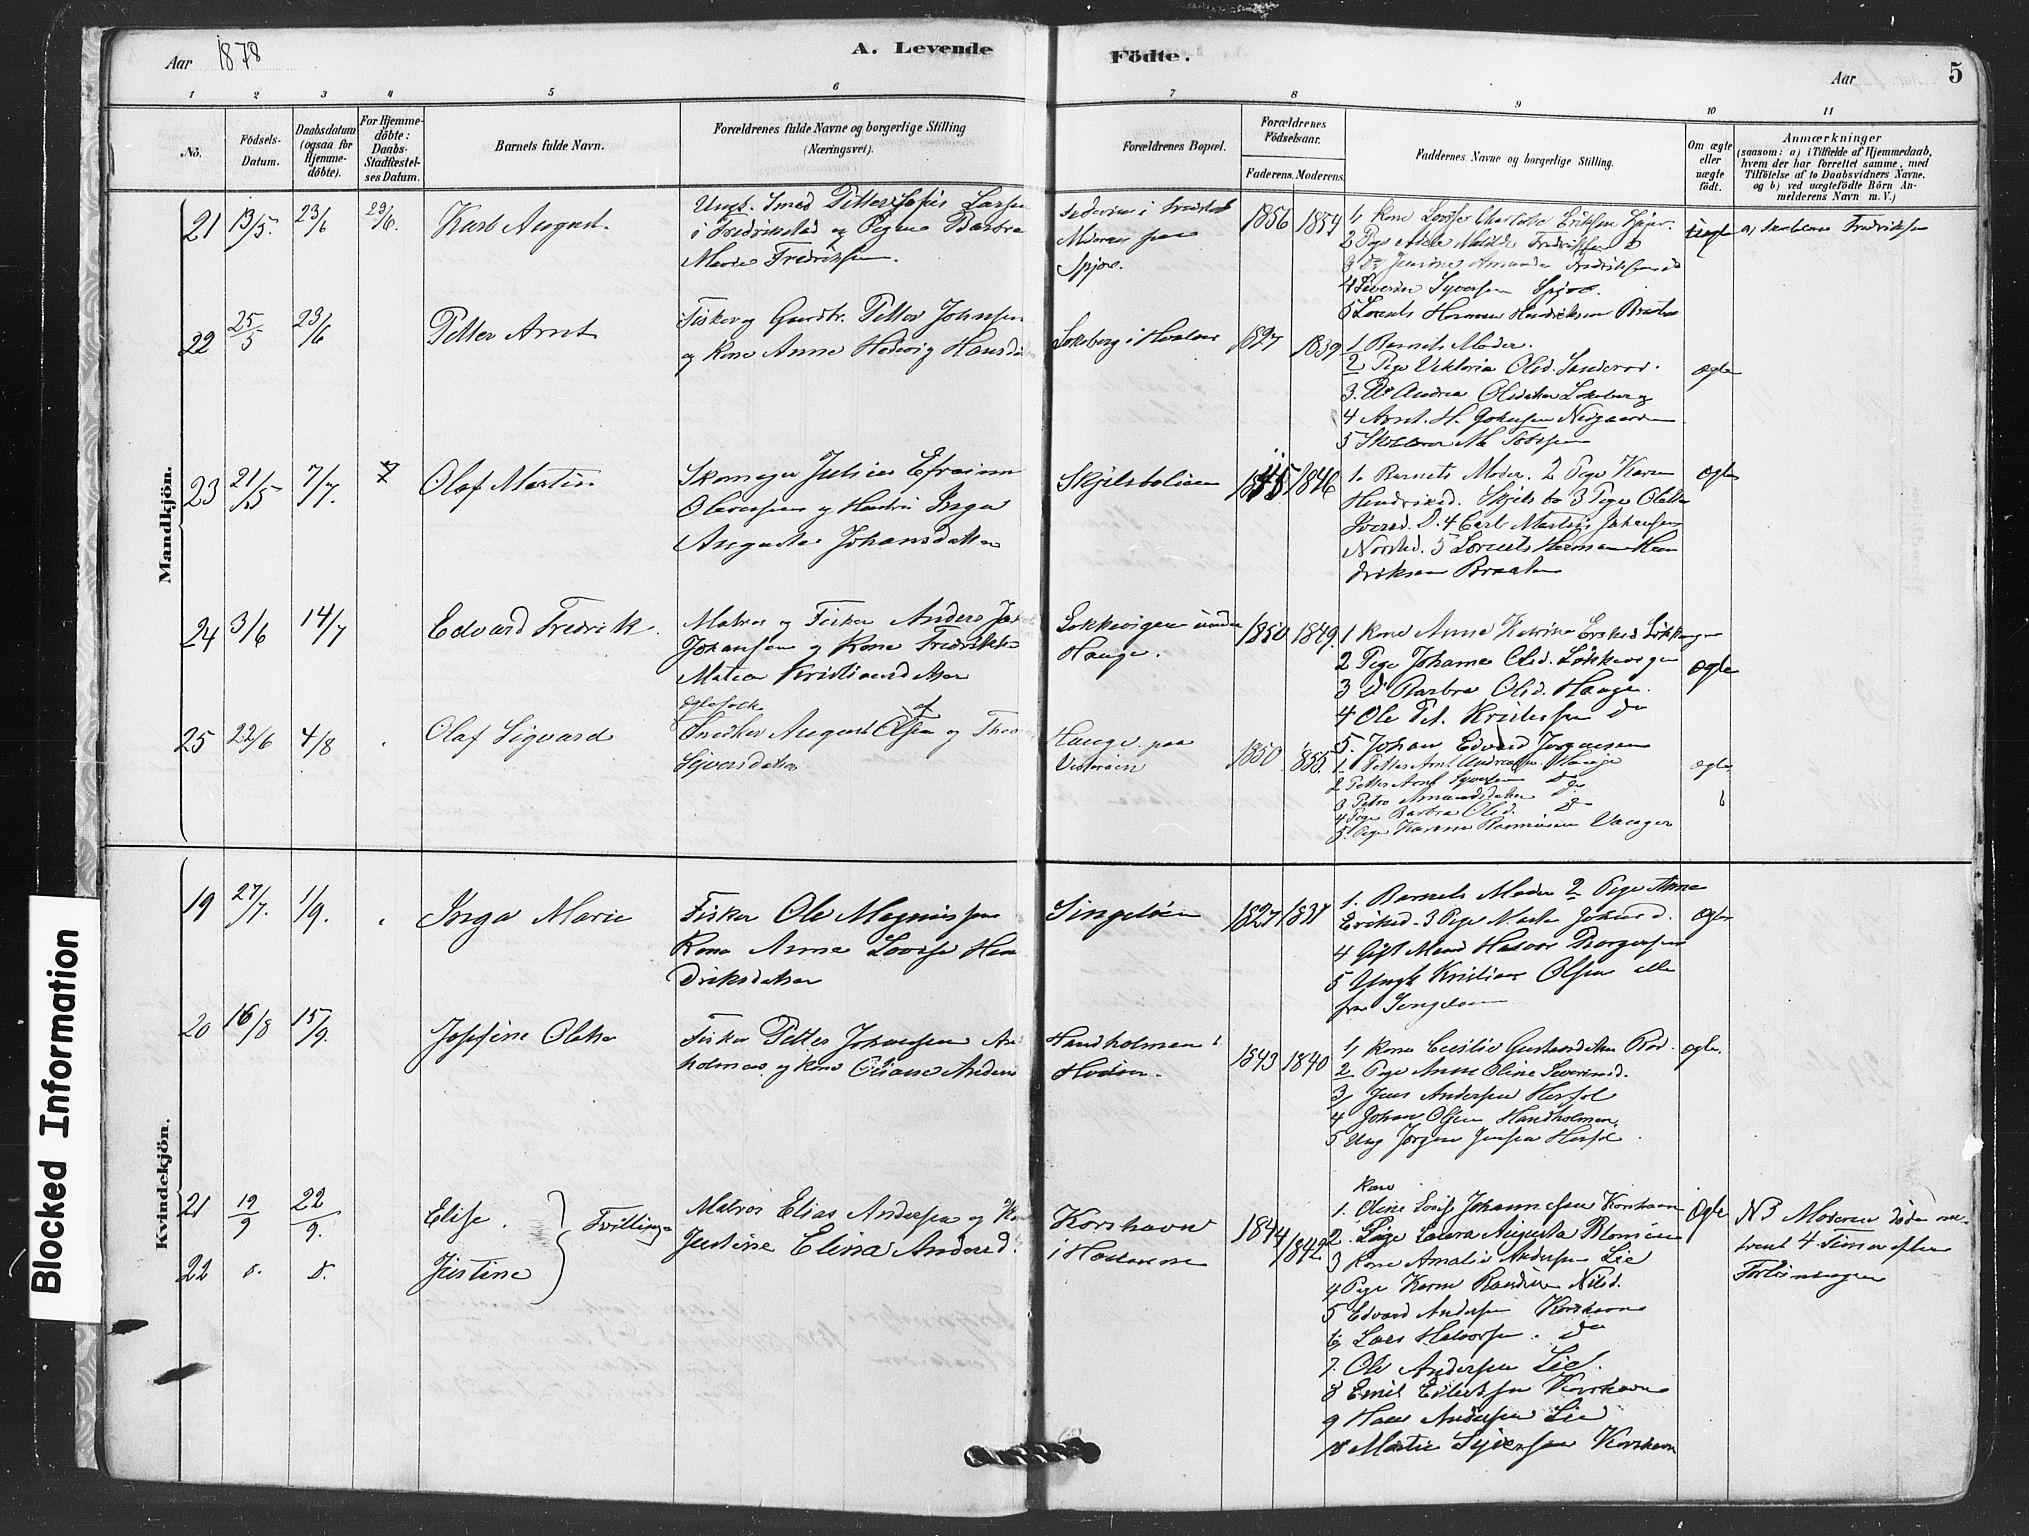 Aar 1878
A. Levende
Födte.
Aar
5
1 2 3 4 5 6 7 8 9 10 11
Nö.
Födsels-
Datum.
Daabsdatum
(ogsaa for
Hjemme-
döbte).
For Hjemme-
döbte:
Daabs-
Stadfæstel-
ses Datum.
Barnets fulde Navn.
Forældrenes fulde Navne og borgerlige Stilling
(Næringsvei).
Forældrenes Bopæl.
Forældrenes
Födselsaar.
Faderens. Moderens.
Faddernes Navne og borgerlige Stilling.
Om ægte
eller
uægte
født.
Anmærkninger
(saasom: a) i Tilfælde af Hjemmedaab,
hvem der har forrettet samme, med
Tilföielse af to Daabsvidners Navne.
og b) ved uægtefödte Börn An-
melderens Navn m. V.)
Mandkjön.
21 13/5. 23/6 23/6. Karl August.
Ungk. Smed Petter Larsen
i Fredrikstad og Pigen Barbra
Marie Fredriksen.
Moderen paa
Spjær.
1856
1 Kone Lovise Charlotte Eriksen Spjær.
2 Pige Matilde Fredriksen
4 Severin Syversen Spjær.
5 Lorents Herman Hendriksen Braaten
uægte
Fredriksen
22 25/5 23/6 Petter Arnt
Fisker og Petter Johnsen
og Kone Anne Hedevig
Lokeberg i Hvaler
1827 1839
1 Barnets Moder.
2 Pige Viktoria Olsd.
3. Do Andrea Lokeberg
4 Arnt H. Johnsen Nedgaarden
5
ægte
23 21/5 7/7. Olaf Martin
Skomager Julius Efraim
Olaussen og Hustru Inga
Augusta Johansdatter
Skjelsbolien
1845 1846
1. Barnets Moder. 2 Pige Karen
Hendriksd. 3 Pige
4 Carl Martin Johansen
5 Lorents Herman Hen
driksen Braaten
ægte
24 3/6 14/7 Edvard Fredrik.
Matros og Fisker Anders
Johansen og Kone Fredrikke
Matea Kristiansdatter
Løkkevigen under
Hauge.
1850 1849.
1 Kone Anne Katrine
2 Pige Johanne Olsd. Løkkevigen
3 D Barbra Olsd. Hauge.
4 Ole Pet. Kristensen do
5. Johan Edvard Jørgensen
ægte
25 22/6 4/8 Olaf Sigvard
Ægtefolk
Snedker August Olsen og
Syversdatter
Hauge paa
Vesterøen
1850 1855.
1. Petter Arnt Andreassen Hauge
2 Petter Arnt Syversen Do
3 Petra Amundsdatter Do
4 Pige Barbra Olsd. Do
5. Pige Karen Rasmussen
ægte
Kvindekjön.
19 27/7. 1/9. Inga Marie
Fisker Ole Magnussen
Kone Anne Lovise Hen
driksdatter
Singeløen
1827 1831
1. Barnets Moder 2 Pige Anne
Eriksd. 3 Pige Marte Johansd.
4 Gift Mand Halvor Borgersen
5 Ungk Kristian Olsen alle
fra Singeløen
ægte
20 16/8 15/9. Josefine Oletta
Fisker Petter Johansen
holmen og Kone Oliane Anders
Handholmen i
Hvaler.
1843 1840
1, Kone Cecilie Gustavsdatter Rød.
2 Pige Anne Oline Severinsd.
3, Jens Andersen Herføl
4 Johan Olsen Handholmen.
5 Ung Jørgen Jensen Herføl.
ægte.
21 19/9 22/9. Elise.
22 d. d. Justine
Tvillinge
Matros Elias Andersen og Kone
Justine Elina Andersd.
Korshavn
i Hvalerne
1844 1842
Kone
1. Oline Johannesen Korshavn
2. Pige Augusta
3 Kone Amalie Andersen Lie
4 Pige Karen
5 Edvard Andersen Korshavn
6, Lars Halvorsen. do
7. Ole Andersen Lie.
8 Emil Korshavn
9 Hans Andersen Lie
10 Martin Syversen Korshavn
Ægte
NB Moderen døde om-
trent 4 Timer efter
Forløsningen
Blocked Information